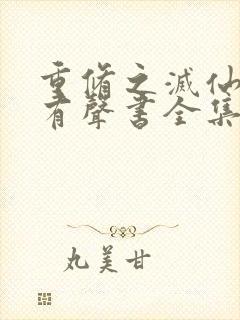 重脩之滅仙
有聲書全集
丸美甘